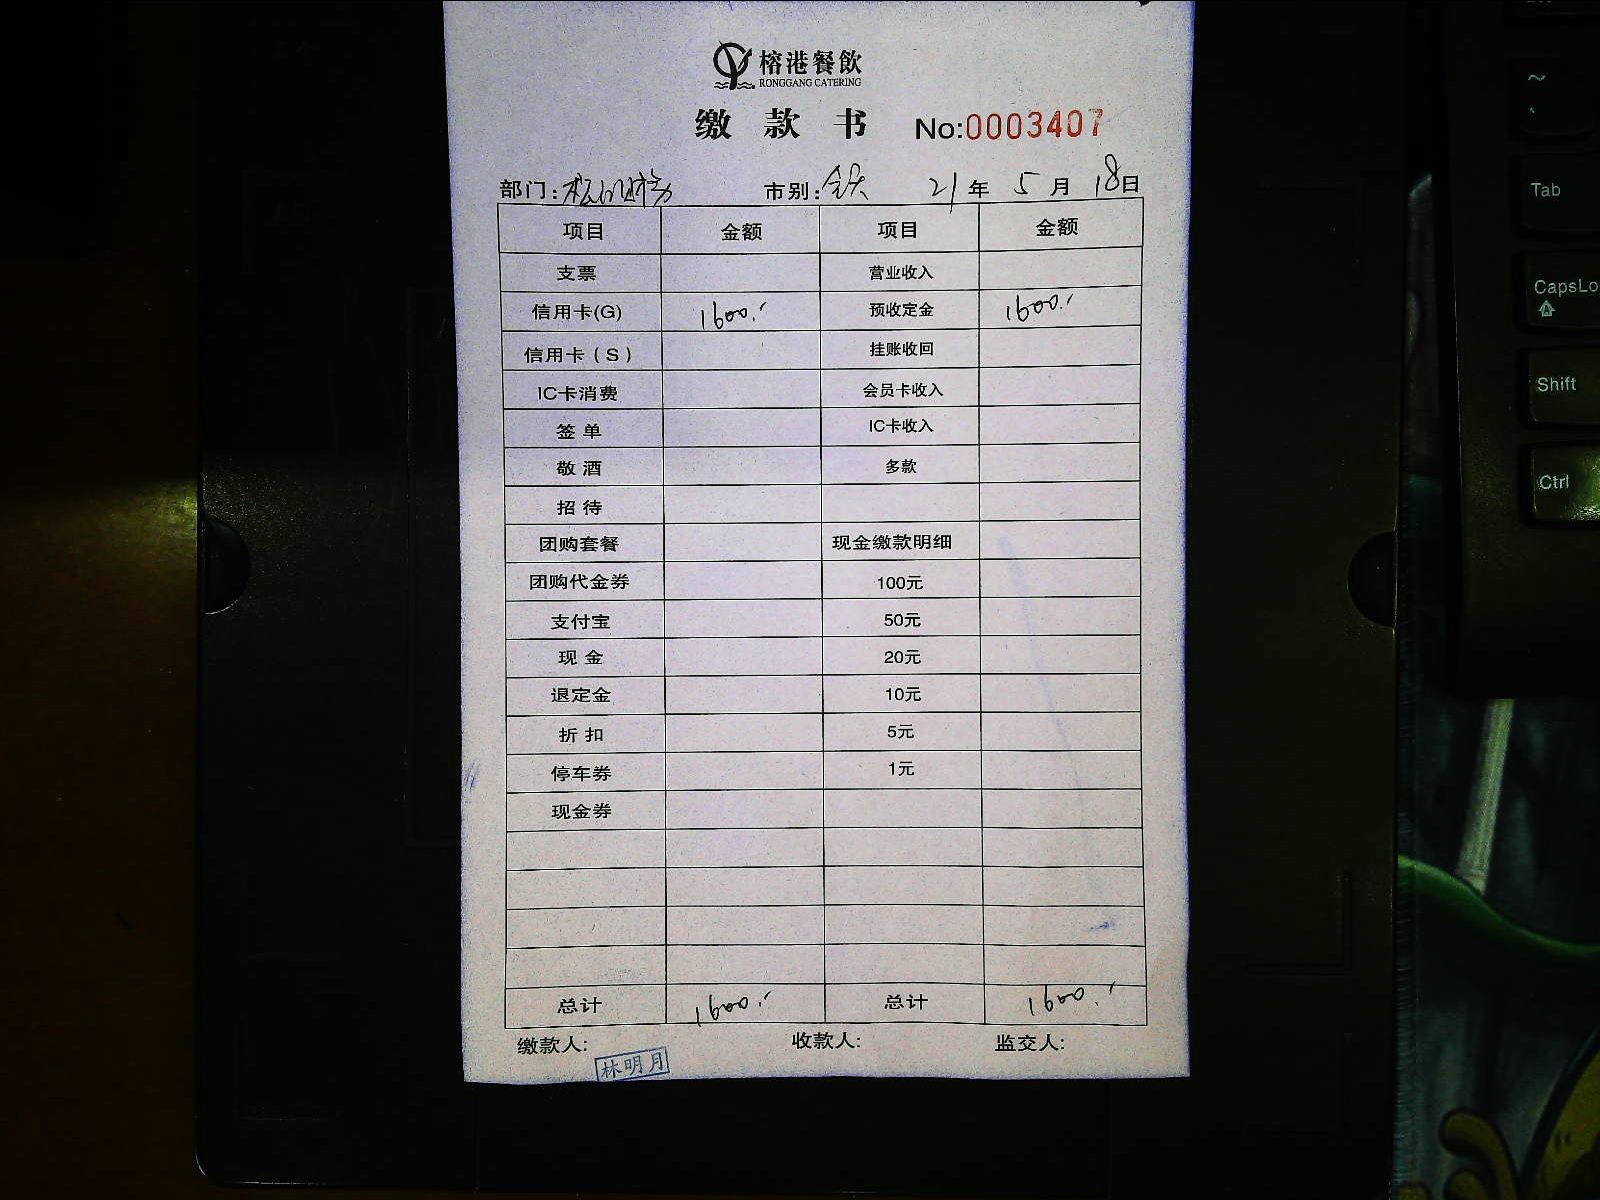 榕港餐飲
RONGGANG CATERING
缴 款 书 No:0003407
部门: 市别:全天 21年 5月 18日
项目 金额 项目 金额
支票 营业收入
信用卡(G) 1600.- 预收定金 1600.-
信用卡(S) 挂账收回
IC卡消费 会员卡收入
签 单 IC卡收入
敬 酒 多款
招 待
团购套餐 现金缴款明细
团购代金券 100元
支付宝 50元
现 金 20元
退定金 10元
折 扣 5元
停车券 1元
现金券
总计 1600.- 总计 1600.-
缴款人: 收款人: 监交人:
林明月
~
Tab
CapsLo
Shift
Ctrl